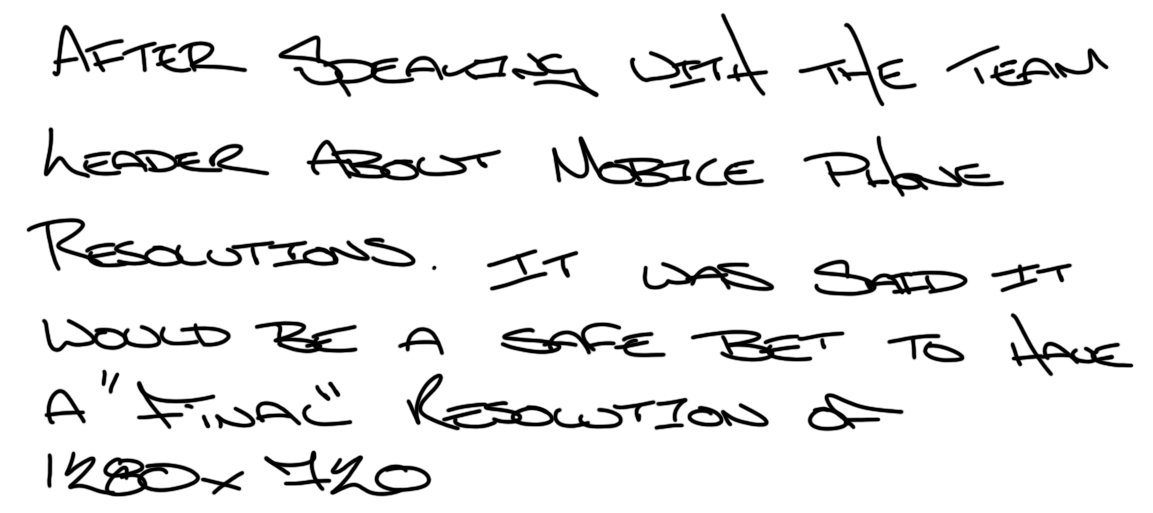 After Speaking with the Team
Leader About Mobile Phone
Resolutions. It was said it
would be a safe bet to have
a "Final" Resolution of
1280x720